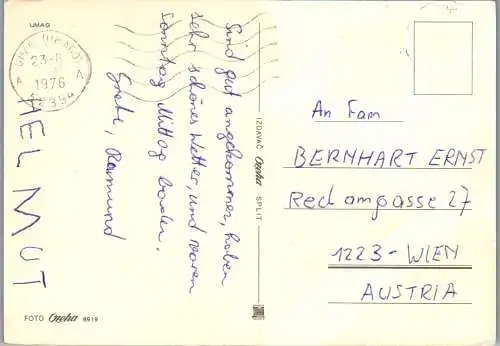 UMAG
UMAG (UMAGO)
23-8
1976
A A
52394
Sind gut angekommen, haben
sehr schönes Wetter, und waren
Sonntag Mittag baden.
Grete, Raimund
HELMUT
FOTO Oroha 8919
IZDAVAČ Oroha SPLIT
An Fam
BERNHART ERNST
Reclamgasse 27
1223-WIEN
AUSTRIA